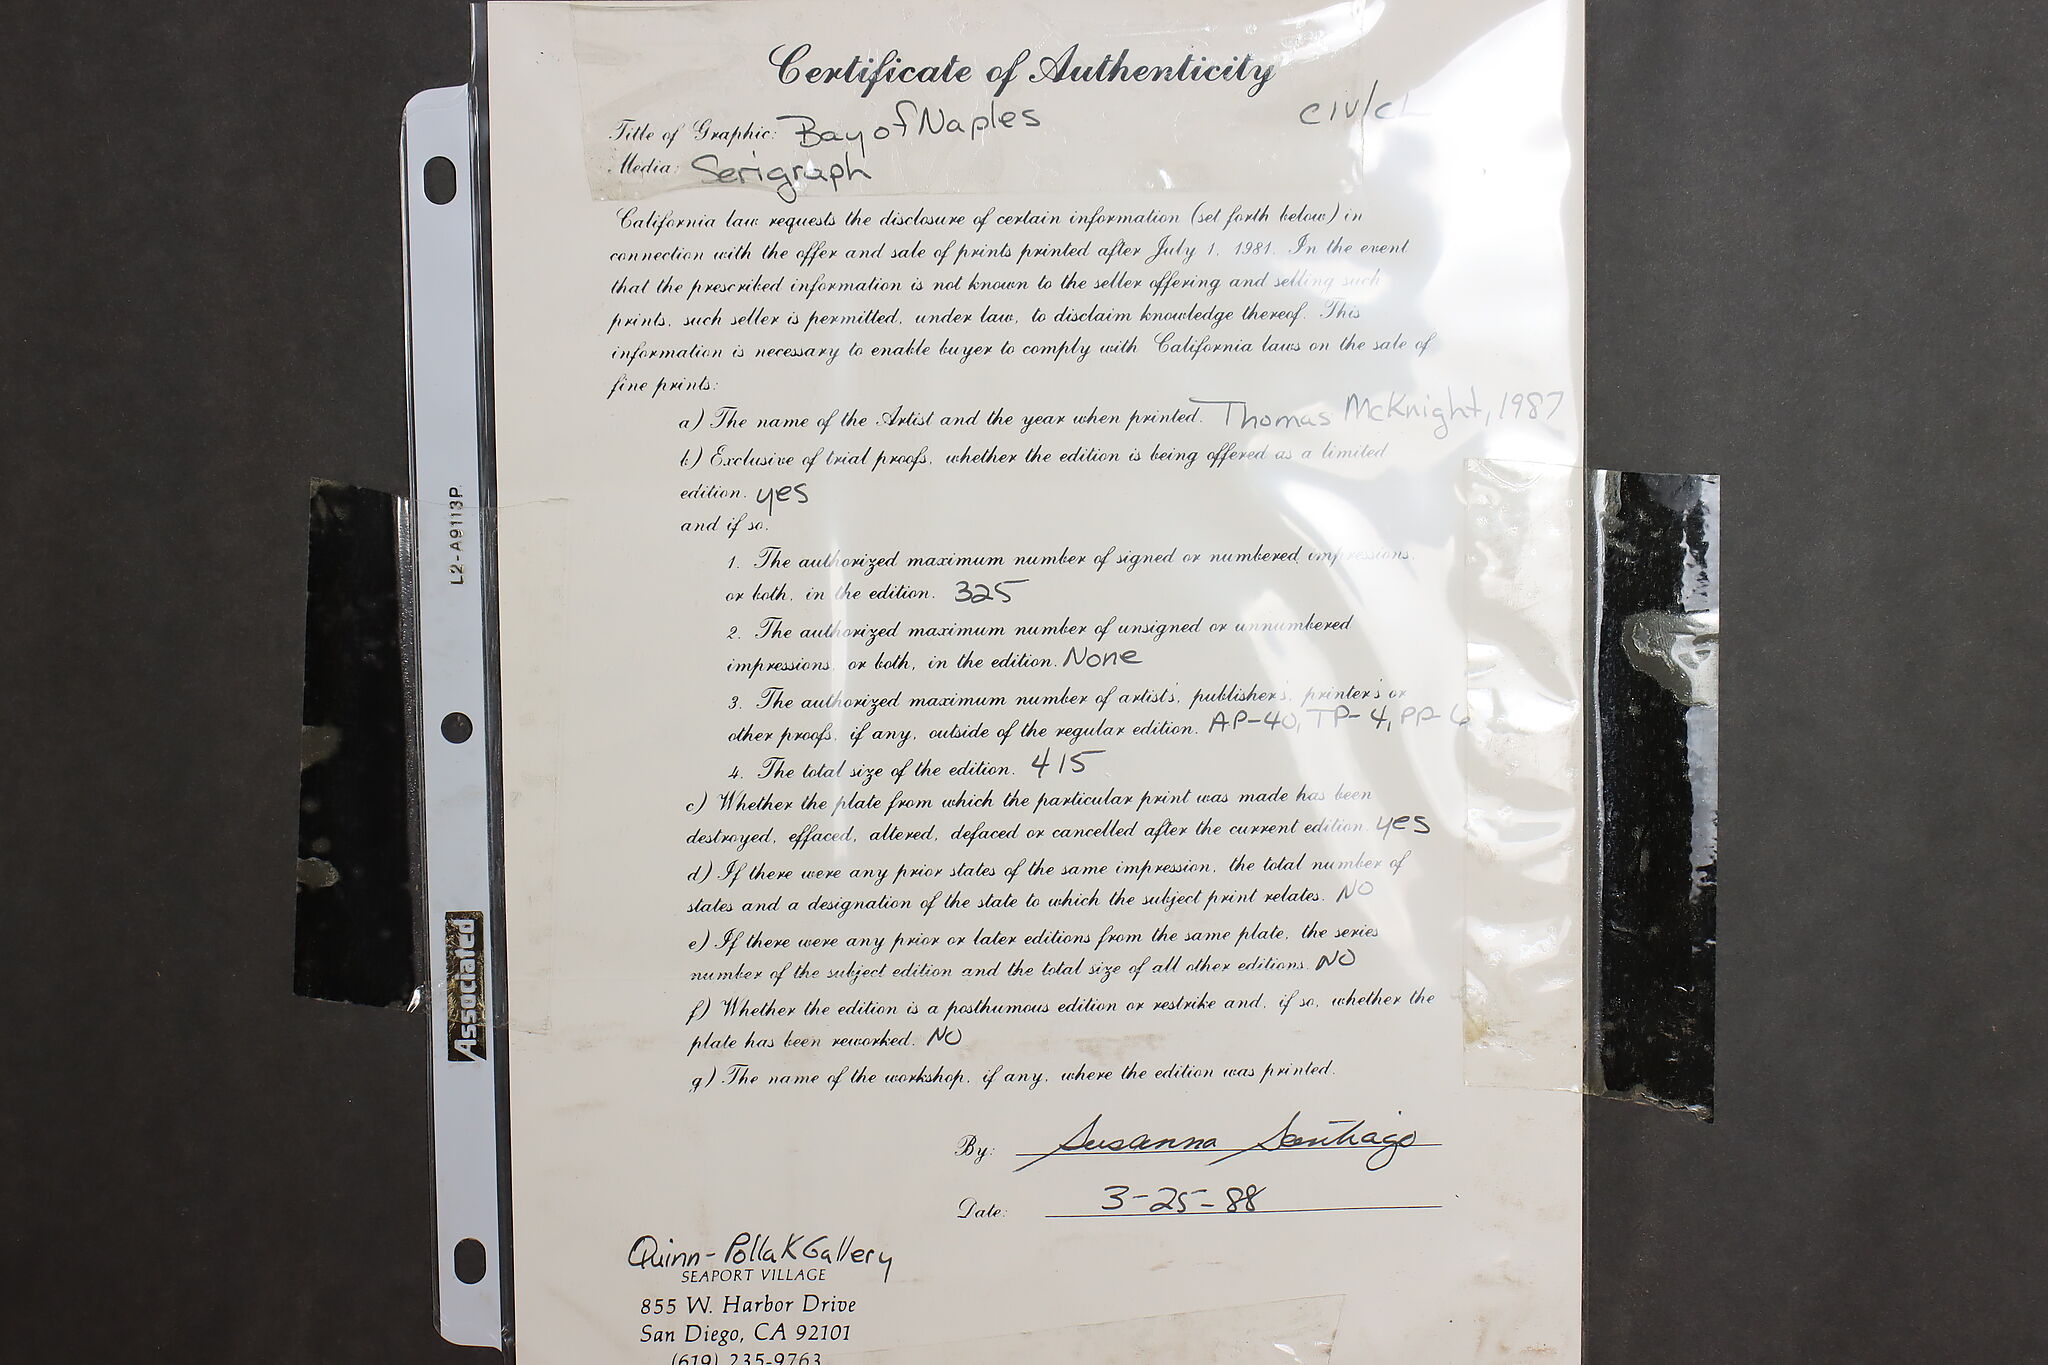 Certificate of Authenticity
CIV/CL
Title of Graphic: Bay of Naples
Media: Serigraph
California law requests the disclosure of certain information (set forth below) in
connection with the offer and sale of prints printed after July 1, 1981. In the event
that the prescribed information is not known to the seller offering and selling such
prints, such seller is permitted, under law, to disclaim knowledge thereof. This
information is necessary to enable buyer to comply with California laws on the sale of
fine prints:
a) The name of the Artist and the year when printed. Thomas McKnight, 1987
b) Exclusive of trial proofs, whether the edition is being offered as a limited
edition. yes
and if so,
1. The authorized maximum number of signed or numbered impressions,
or both, in the edition. 325
2. The authorized maximum number of unsigned or unnumbered
impressions, or both, in the edition. None
3. The authorized maximum number of artist's, publisher's, printer's or
other proofs, if any, outside of the regular edition. AP-40, TP-4, PP-6
4. The total size of the edition. 415
c) Whether the plate from which the particular print was made has been
destroyed, effaced, altered, defaced or cancelled after the current edition. yes
d) If there were any prior states of the same impression, the total number of
states and a designation of the state to which the subject print relates. NO
e) If there were any prior or later editions from the same plate, the series
number of the subject edition and the total size of all other editions. NO
f) Whether the edition is a posthumous edition or restrike and, if so, whether the
plate has been reworked. NO
g) The name of the workshop, if any, where the edition was printed.
By: Susanna Santiago
Date: 3-25-88
Quinn-Pollak Gallery
SEAPORT VILLAGE
855 W. Harbor Drive
San Diego, CA 92101
(619) 235-9763
L2-A9113P
Associated